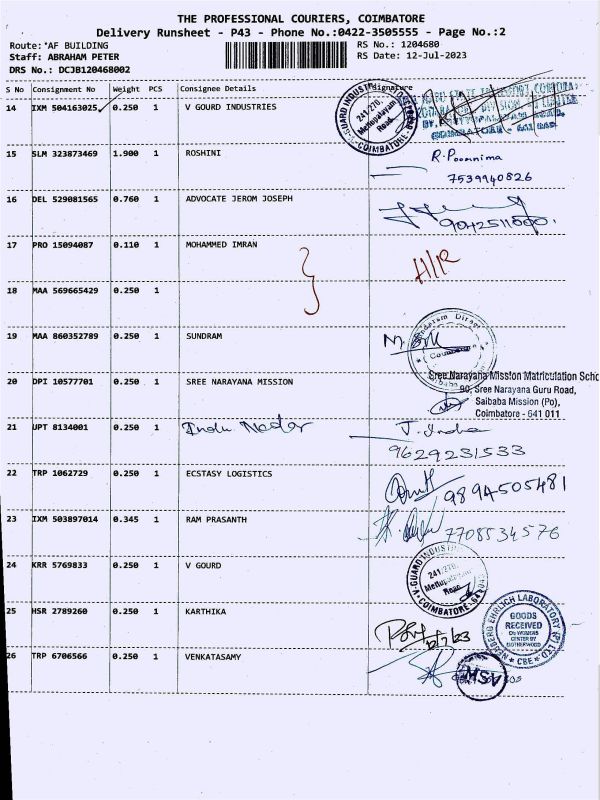 THE PROFESSIONAL COURIERS, COIMBATORE
Delivery Runsheet - P43 - Phone No.:0422-3505555 - Page No.:2
Route: AF BUILDING
RS No.: 1204680
Staff: ABRAHAM PETER
RS Date: 12-Jul-2023
DRS No.: DCJB120468002
S No Consignment No Weight PCS Consignee Details Signature
14 IXM 504163025 0.250 1 V GOURD INDUSTRIES
V-GUARD INDUSTRIES
241/270,
Mettupalayam
Road,
COIMBATORE
15 SLM 323873469 1.900 1 ROSHINI
R. Poornima
7539940826
16 DEL 529081565 0.760 1 ADVOCATE JEROM JOSEPH
17 PRO 15094087 0.110 1 MOHAMMED IMRAN
H/R
18 MAA 569665429 0.250 1
19 MAA 860352789 0.250 1 SUNDRAM
Coimbatore
20 DPI 10577701 0.250 1 SREE NARAYANA MISSION
Sree Narayana Mission Matriculation Scho
90, Sree Narayana Guru Road,
Saibaba Mission (Po),
Coimbatore - 641 011
21 UPT 8134001 0.250 1 Indu Nadar J. Indra
9629231533
22 TRP 1062729 0.250 1 ECSTASY LOGISTICS
9894505481
23 IXM 503897014 0.345 1 RAM PRASANTH
7708534576
24 KRR 5769833 0.250 1 V GOURD
V-GUARD INDUSTRIES
241/270,
Mettupalayam
Road,
COIMBATORE
25 HSR 2789260 0.250 1 KARTHIKA
12/7/23
EHRLICH LABORATORY (P) LTD
GOODS
RECEIVED
CBE
26 TRP 6706566 0.250 1 VENKATASAMY
ASM